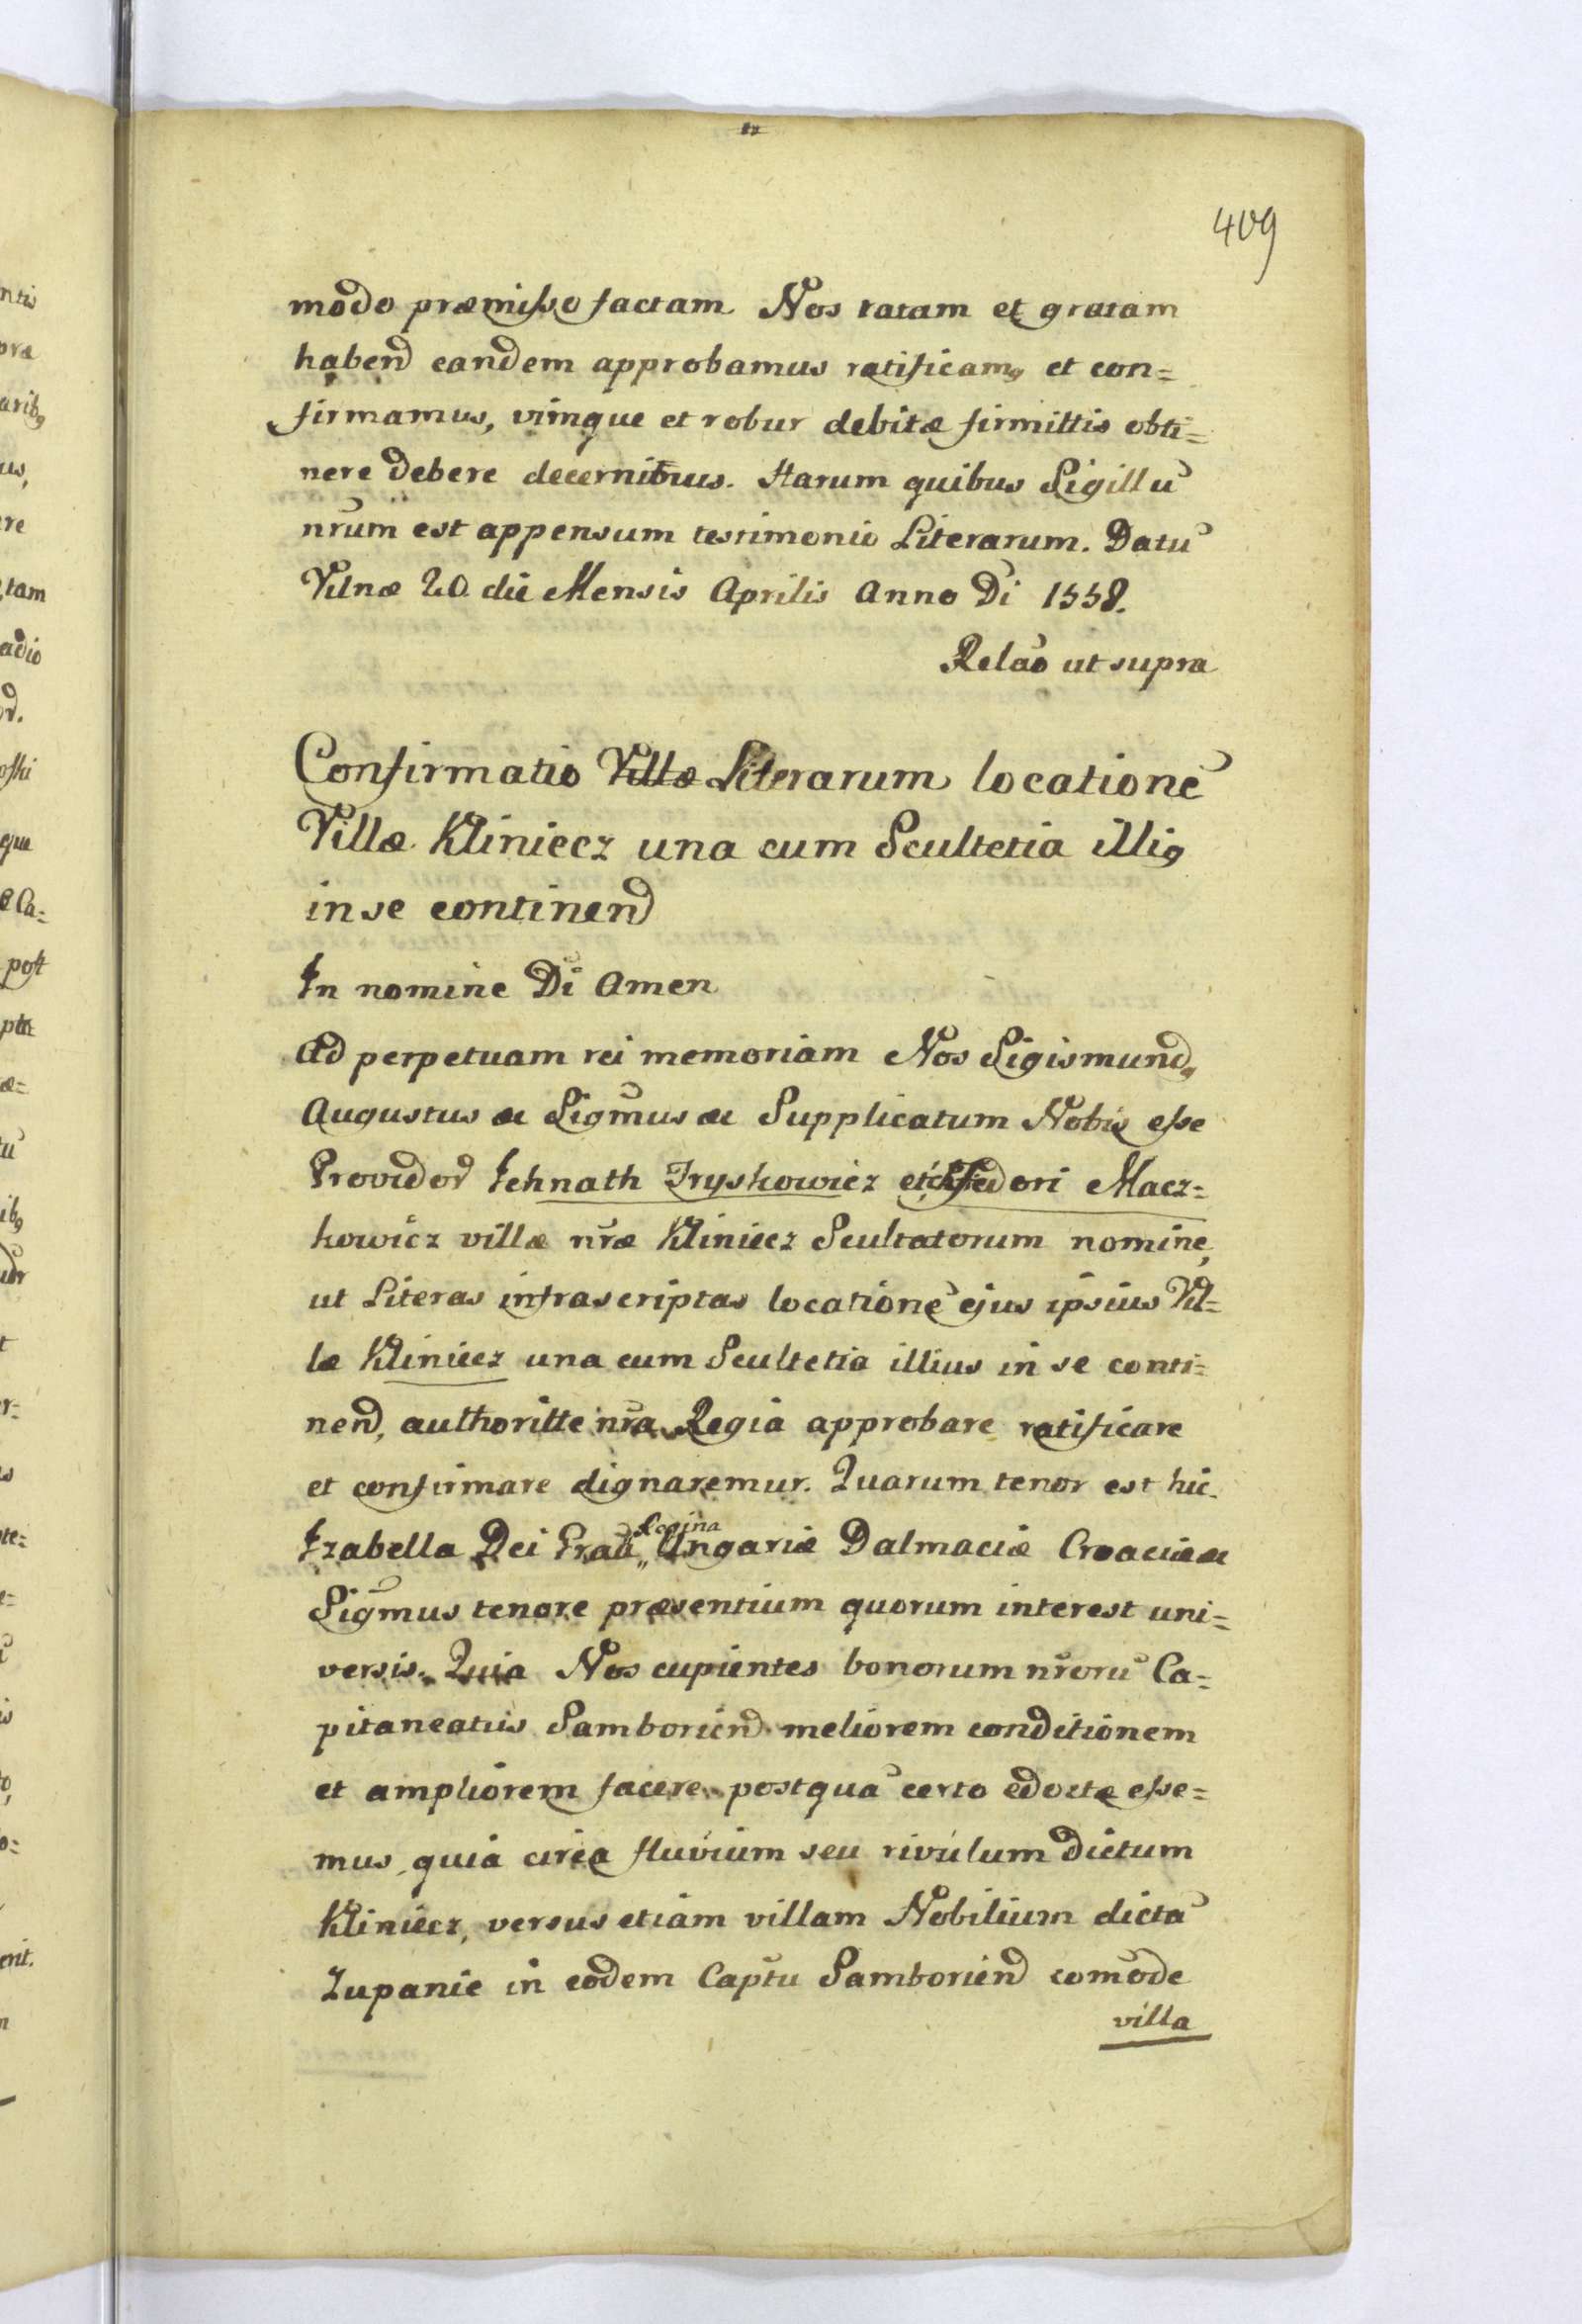 409
modo præmisso factam Nos ratam et gratam
habend eandem approbamus ratificam9 et con=
firmamus, vimque et robur debitæ firmittis obti=
nere debere decernimus. Harum quibus Sigillū
nr̃um est appensum testimonio Literarum. Datū
Vilnæ 20 die Mensis Aprilis Anno Dĩ 1558.
Relaõ ut supra
Confirmatio Villæ Literarum locationẽ
Villæ Kliniecz una cum Scultetia illi9
in se continend
In nomine Dĩ Amen
Ad perpetuam rei memoriam Nos Sigismund9
Augustus &c Sigm̃us &c Supplicatum Nobis esse
Providor Iehnath Tryskowicz et Fiedori Macz=
kowicz villæ nr̃æ Kliniecz Scultatorum nomine,
ut Literas infrascriptas locationẽ ejus ipsius Vil=
læ Kliniecz una cum Scultetia illius in se conti=
nend, authoritte nr̃a Regia approbare ratificare
et confirmare dignaremur. Quarum tenor est hic.
Izabella Dei Graũ „Regina Ungariæ Dalmaciæ Croaciæ &c
Sigm̃us tenore præsentium quorum interest uni=
versis. Quia Nos cupientes bonorum nr̃orũ Ca=
pitaneatus Samboriend meliorem conditionem
et ampliorem facere postquã certo edoctæ esse=
mus, quia circa fluvium seu rivulum dictum
Kliniecz, versus etiam villam Nobilium dictã
Zupanie in eodem Cap̃tu Samboriend com̃ode
villa